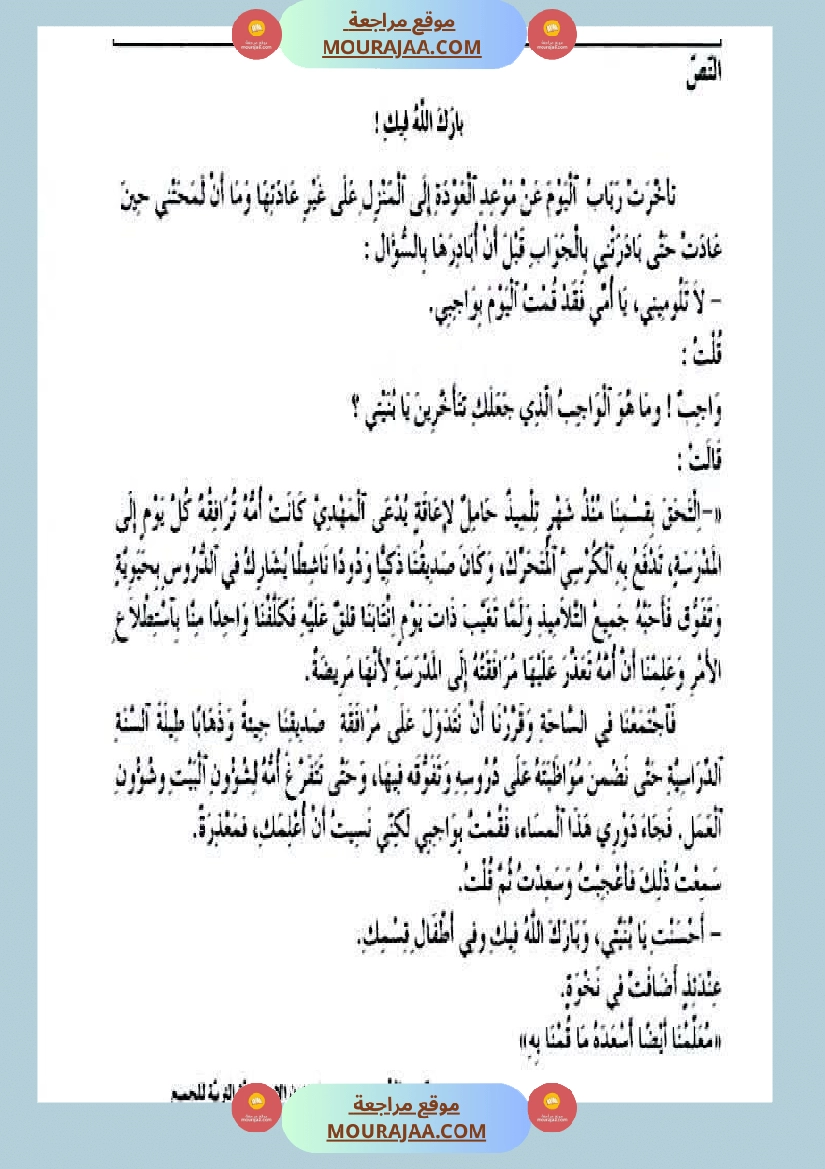 موقع مراجعة
MOURAJAA.COM
النّصّ
بَارَكَ اللَّهُ فِيكِ !
تَأَخَّرَتْ رَبَابُ ٱلْيَوْمَ عَنْ مَوْعِدِ ٱلْعَوْدَةِ إِلَى ٱلْمَنْزِلِ عَلَى غَيْرِ عَادَتِهَا وَمَا أَنْ لَمَحَتْنِي حِينَ
عَادَتْ حَتَّى بَادَرَتْنِي بِالْجَوَابِ قَبْلَ أَنْ أُبَادِرَهَا بِالسُّؤَالِ :
– لاَ تَلُومِينِي، يَا أُمِّي فَقَدْ قُمْتُ ٱلْيَوْمَ بِوَاجِبِي.
قُلْتُ :
وَاجِبٌ ! ومَا هُوَ ٱلْوَاجِبُ الَّذِي جَعَلَكِ تَتَأَخَّرِينَ يَا بُنَيَّتِي ؟
قَالَتْ :
«–اِلْتَحَقَ بِقِسْمِنَا مُنْذُ شَهْرٍ تِلْمِيذٌ حَامِلٌ لإِعَاقَةٍ يُدْعَى ٱلْمَهْدِيْ كَانَتْ أُمُّهُ تُرَافِقُهُ كُلَّ يَوْمٍ إِلَى
المَدْرَسَةِ، تَدْفَعُ بِهِ ٱلْكُرْسِيَّ ٱلْمُتَحَرِّكَ، وَكَانَ صَدِيقُنَا ذَكِيًّا وَدُودًا نَاشِطًا يُشَارِكُ فِي ٱلدُّرُوسِ بِحَيَوِيَّةٍ
وَتَفَوُّقٍ فَأَحَبَّهُ جَمِيعُ التَّلاَمِيذِ وَلَمَّا تَغَيَّبَ ذَاتَ يَوْمٍ اِنْتَابَنَا قلقٌ عَلَيْهِ فَكَلَّفْنَا وَاحِدًا مِنَّا بِٱسْتِطْلاَعِ
الأَمْرِ وَعَلِمْنَا أَنَّ أُمَّهُ تَعَذَّرَ عَلَيْهَا مُرَافَقَتُهُ إِلَى المَدْرَسَةِ لأَنَّهَا مَرِيضَةٌ.
فَٱجْتَمَعْنَا فِي السَّاحَةِ وَقَرَّرْنَا أَنْ نَتَدَوَلَ عَلَى مُرَافَقَةِ صَدِيقِنَا جِيئَةً وَذَهَابًا طِيلَةَ ٱلسَّنَةِ
ٱلدِّرَاسِيَّةِ حَتَّى نَضْمَنَ مُوَاظَبَتَهُ عَلَى دُرُوسِهِ وَتَفَوُّقَه فِيهَا، وَحَتَّى تَتَفَرَّغَ أُمُّهُ لِشُؤُونِ ٱلْبَيْتِ وشُؤُونِ
ٱلْعَمَلِ. فَجَاءَ دَوْرِي هَذَا ٱلْمسَاء، فَقُمْتُ بِوَاجِبِي لَكِنِّي نَسِيتُ أَنْ أُعْلِمَكِ، فمَعْذِرَةً.
سَمِعْتُ ذَلِكَ فأُعْجِبْتُ وَسَعِدْتُ ثُمَّ قُلْتُ.
– أَحْسَنْتِ يَا بُنَيَّتِي، وَبَارَكَ اللَّهُ فِيكِ وفِي أَطْفَالِ قِسْمِكِ.
عِنْدَئِذٍ أَضَافَتْ فِي نَخْوَةٍ.
«مُعَلِّمُنَا أَيْضًا أَسْعَدَهُ مَا قُمْنَا بِهِ»
للجميع
موقع مراجعة
MOURAJAA.COM